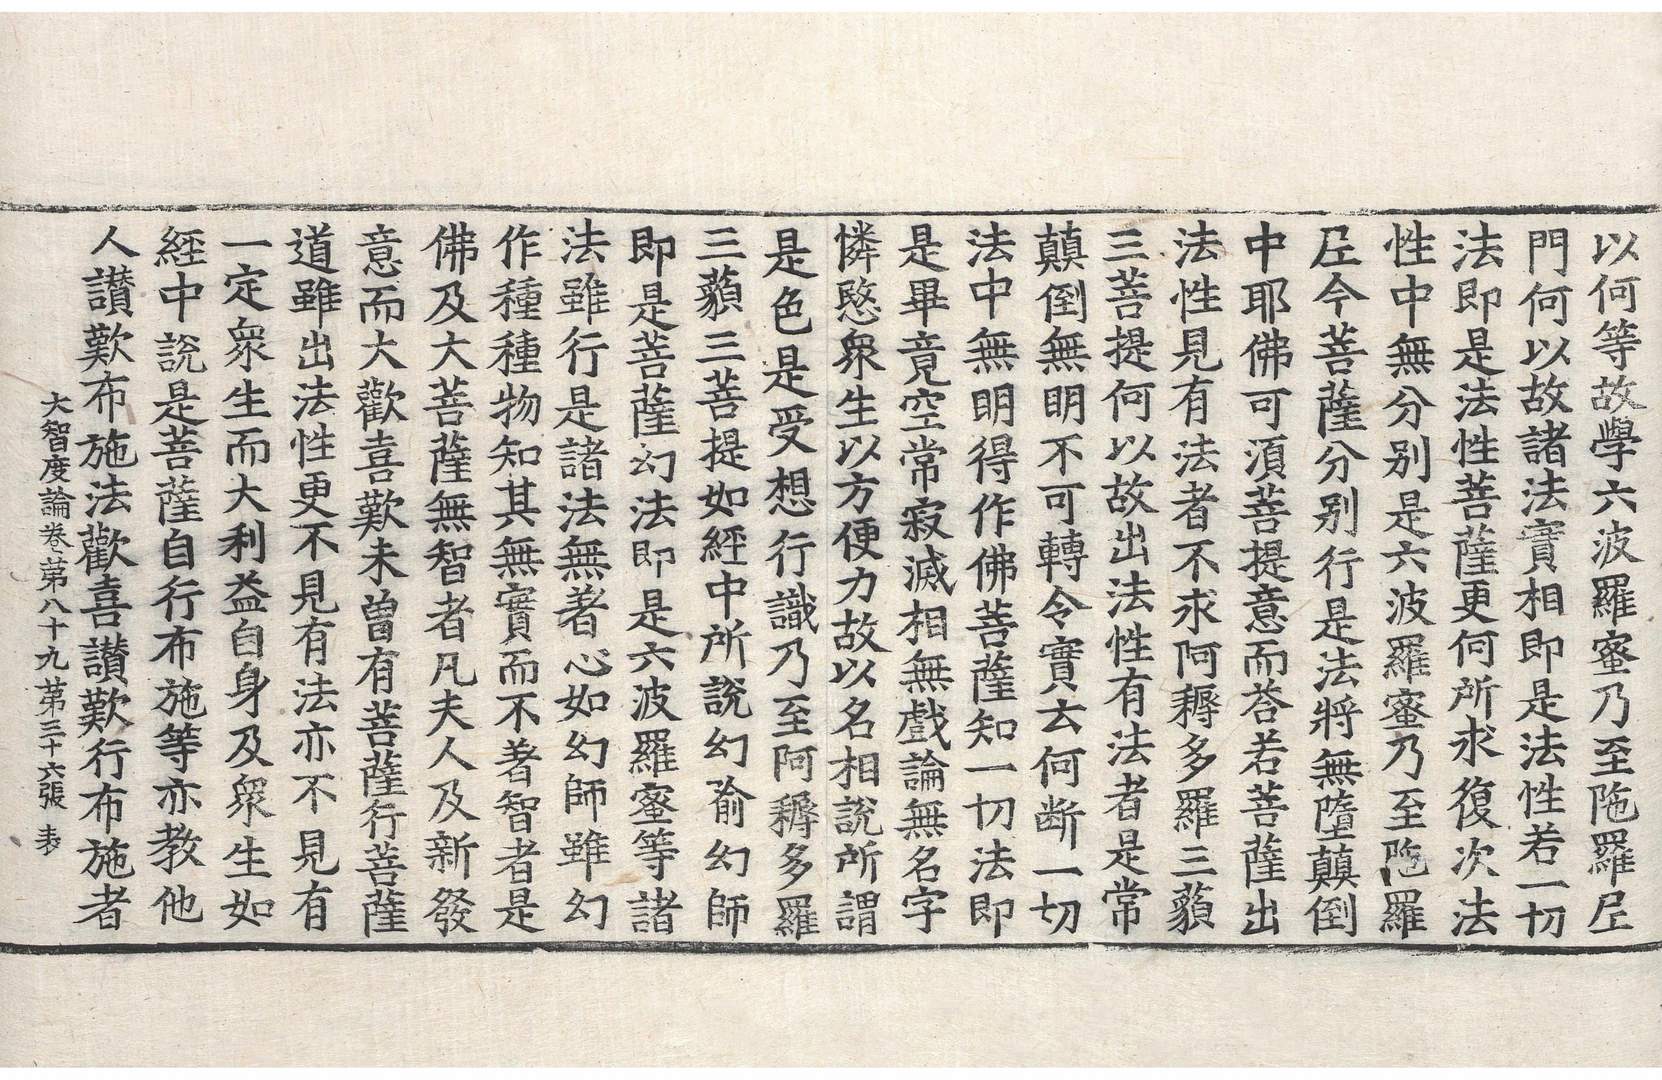 以何等故學六波羅蜜乃至陁羅𡰱
門何以故諸法實相即是法性若一切
法即是法性菩薩更何所求復次法
性中無分別是六波羅蜜乃至陁羅
𡰱今菩薩分別行是法將無墮顛倒
中耶佛可須菩提意而荅若菩薩出
法性見有法者不求阿耨多羅三藐
三菩提何以故出法性有法者是常
顛倒無明不可轉令實云何断一切
法中無明得作佛菩薩知一切法即
是畢竟空常寂滅相無戲論無名字
憐愍衆生以方便力故以名相說所謂
是色是受想行識乃至阿耨多羅
三藐三菩提如經中所說幻喻幻師
即是菩薩幻法即是六波羅蜜等諸
法雖行是諸法無著心如幻師雖幻
作種種物知其無實而不著智者是
佛及大菩薩無智者凡夫人及新發
意而大歡喜歎未曽有菩薩行菩薩
道雖出法性更不見有法亦不見有
一定衆生而大利益自身及衆生如
經中說是菩薩自行布施等亦教他
人讃歎布施法歡喜讃歎行布施者
大智度論卷第八十九 第三十六張